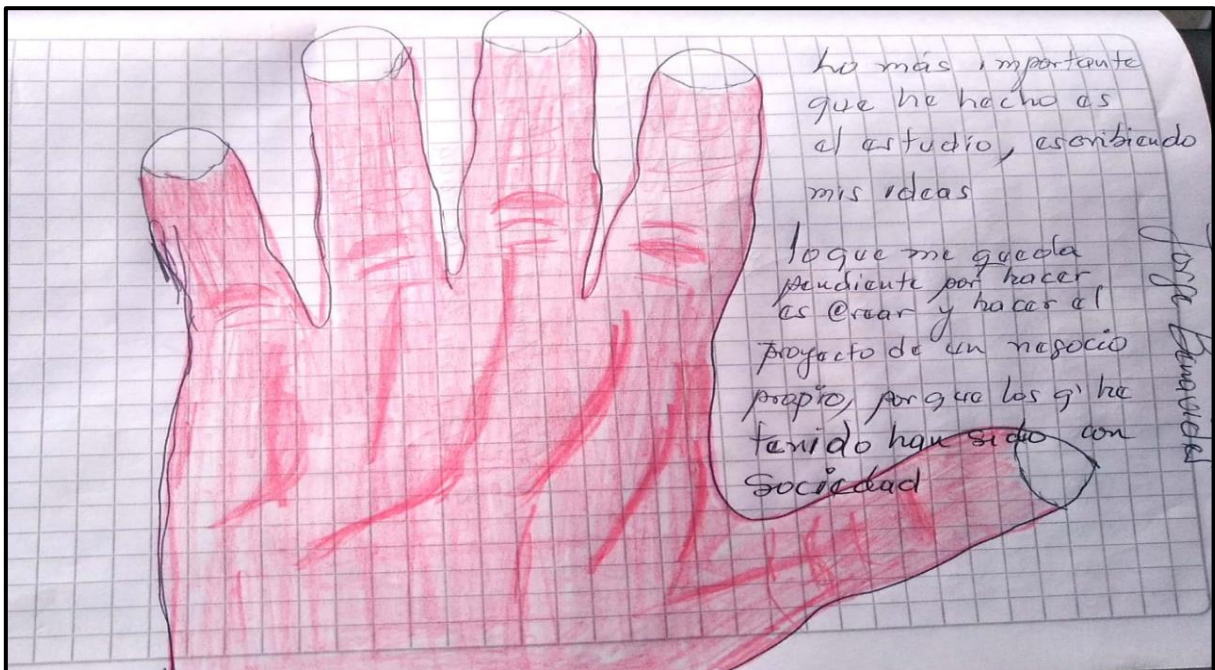 Lo más importante
que he hecho es
el estudio, escribiendo
mis ideas
lo que me queda
pendiente por hacer
es Crear y hacer el
proyecto de un negocio
propio, por que los q' he
tenido han sido con
Sociedad
Jorge